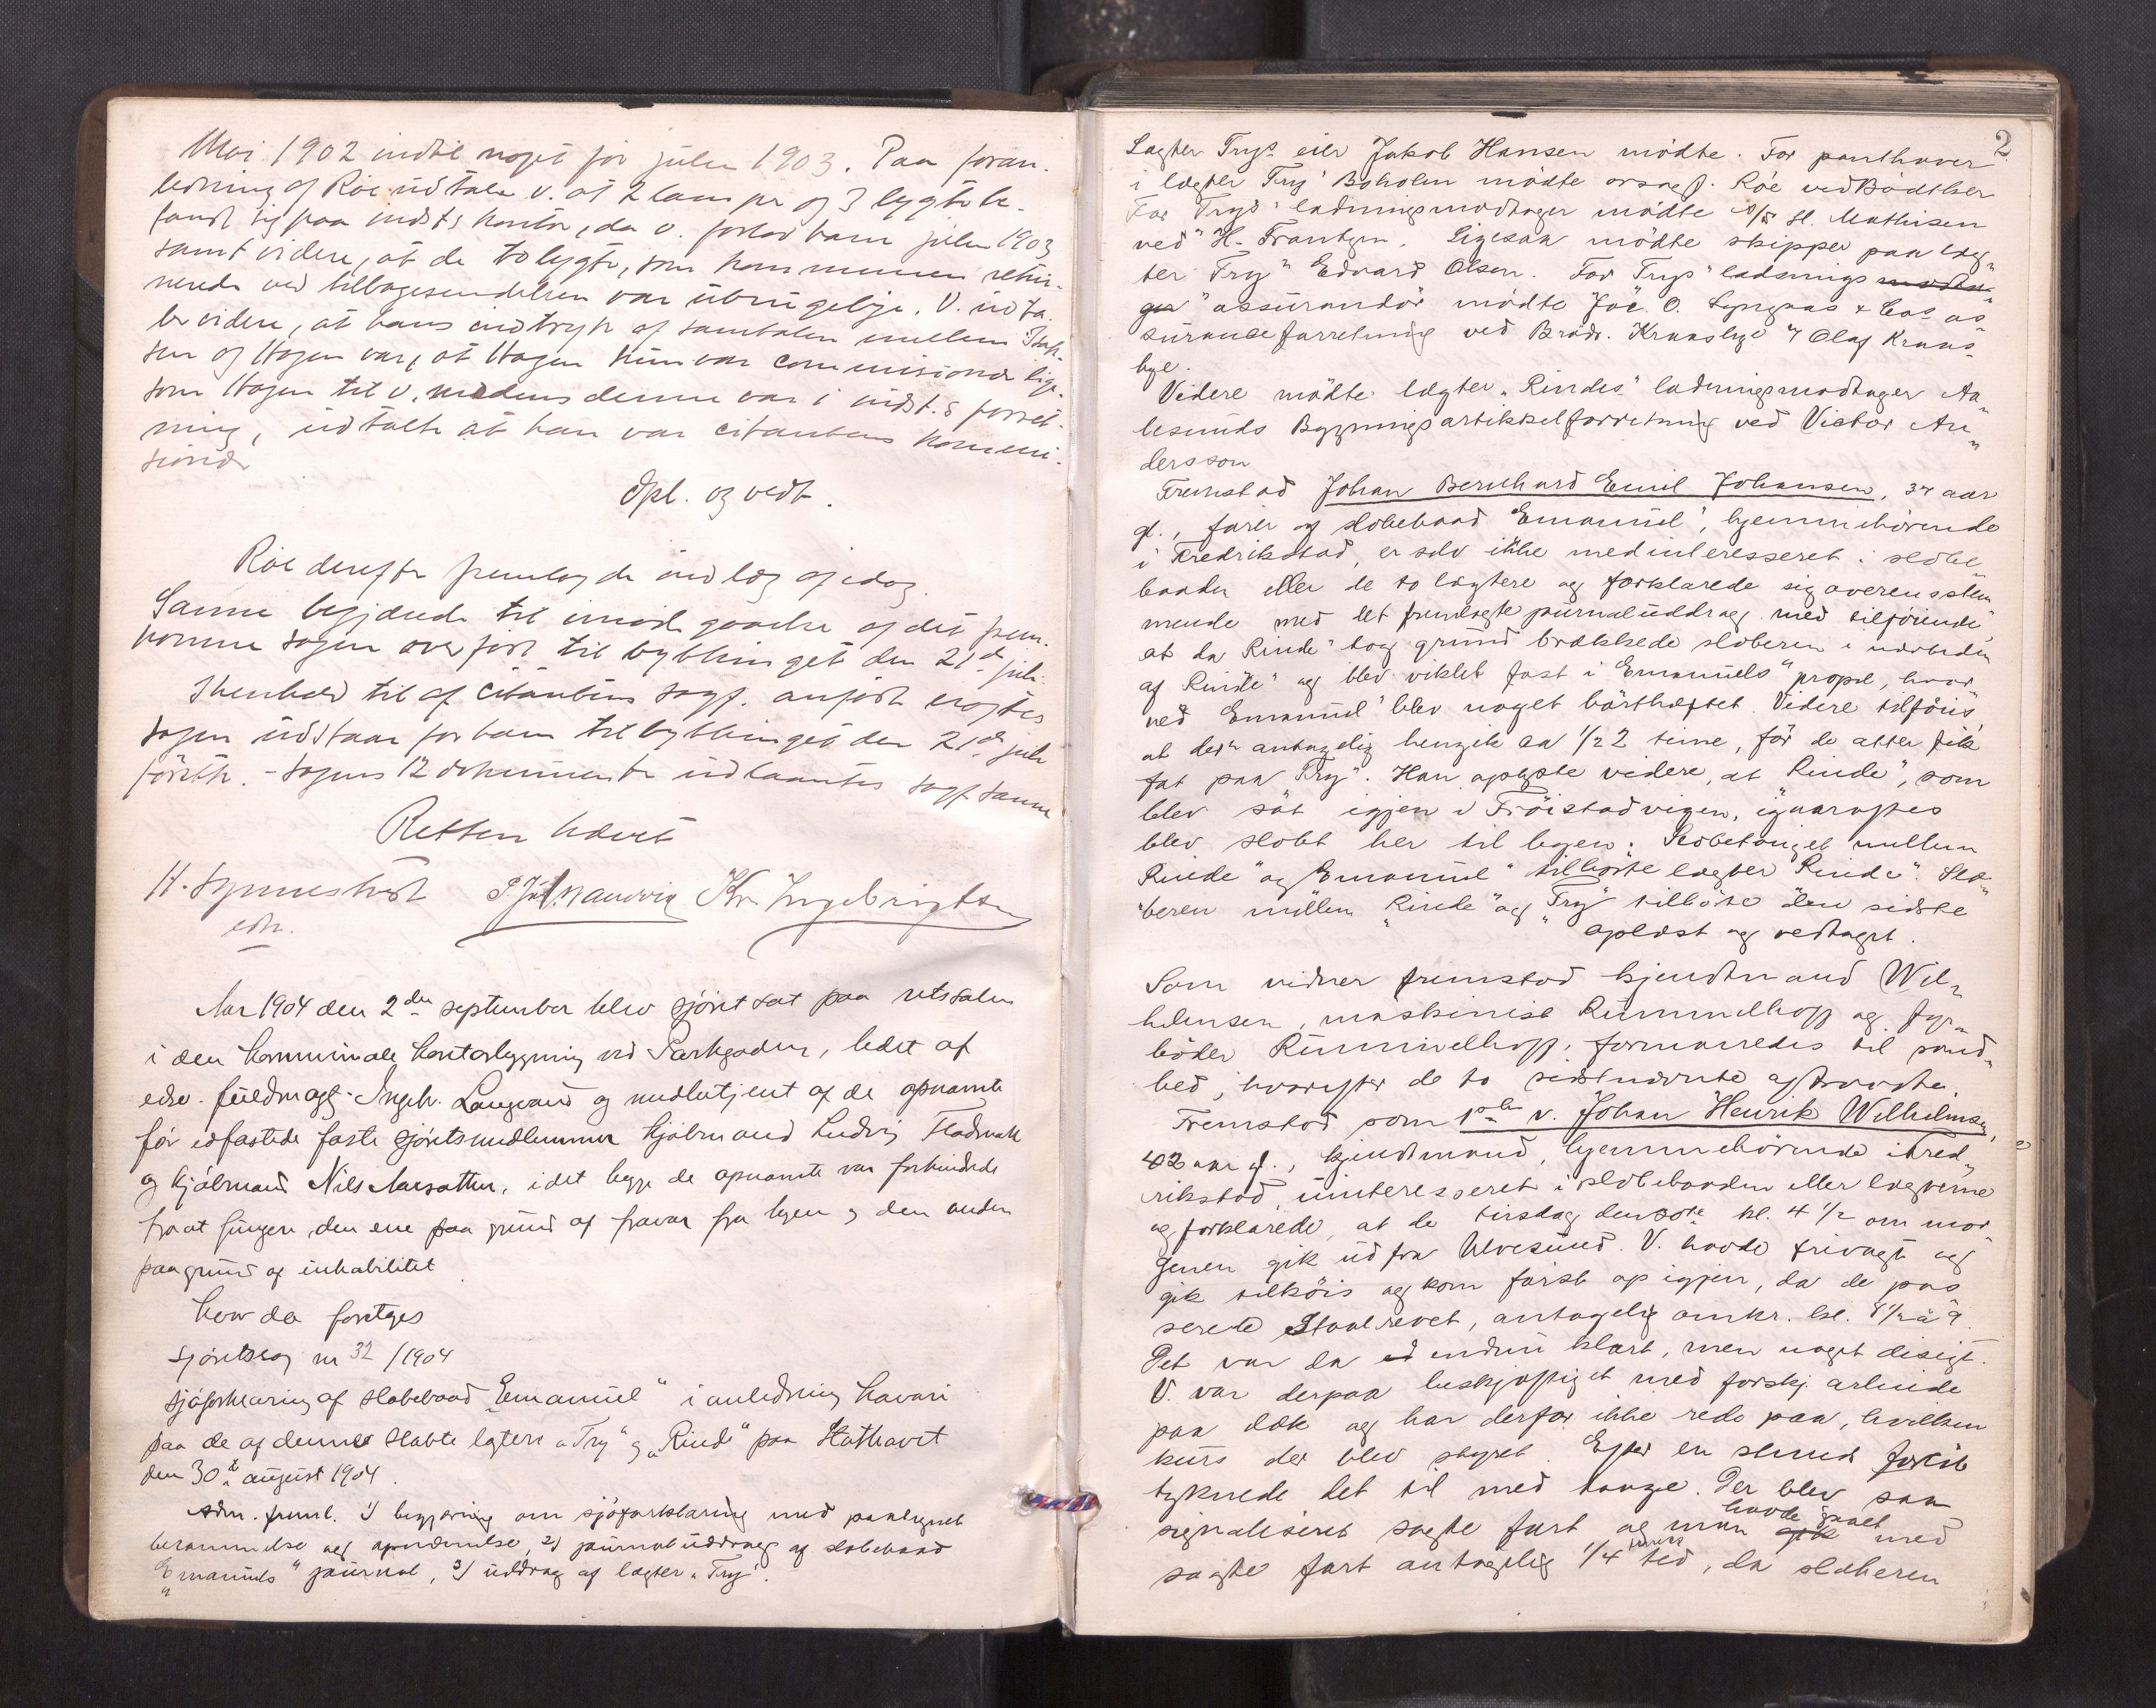 Mai 1902 indtil noget før julen 1903. Paa foran-
ledning af Röe udtaler v. at 2 lamper og 3 lygter be-
fandt sig paa indst.s kontor, da v. forlod ham julen 1903
samt videre, at de to lygter, som kommunen retur-
nerede ved tilbagesendelsen var ubrugelige. V. udta-
ler videre, at hans indtryk af samtalen mellem
sen og Hagen var, at Hagen kun var commissionær lige-
som Hagen til v. medens denne var i indst.s forret-
ning, udtalte at han var citantens kommi-
sionær
Opl. og vedt.
Röe derefter fremlagde indlæg af idag.
Sanne begjærede til imødegaaelse af det frem-
komne sagen overført til bythinget den 21de juli.
I henhold til af citantens sagf. anført eragtes
sagen udstaar for ham til bythinget den 21de juli
førstk. - Sagens 12 dokumenter udlaantes sagf. Sanne
Retten hævet
H. Synnestvedt Kr. Ingebrigtsen
edsv.
Aar 1904 den 2den september blev sjöret sat paa retssalen
i den kommunale kontorbygning ved Parkgaden, ledet af
edsv. fuldmægt. Ingebr. Langeland og meddetjent af de opnævnte
før edfæstede faste sjöretsmedlemmer skjölmand Ludvig Flademark
og skjölmand Nils Aarsæther, idet begge de opnævnte var forhindrede
fra at fungere, den ene paa grund af fravær fra byen og den anden
paa grund af inhabilitet
hvor da foretoges
Sjöretssag nr 32/1904
Sjöforklaring af slæbebaad "Emanuel" i anledning havari
paa de af denne slæbte lægtere "Try" og "Rinde" paa Stathavet
den 30te august 1904.
Adm. freml. 1) begjæring om sjöforklaring med paategnet
berammelse og opnævnelse, 2) journaluddrag af slæbebaad
"Emanuels" journal, 3) uddrag af lægter "Try".
2
Lægter Trys eier Jakob Hansen mødte. For panthaver
i lægter "Try" Boholm mødte orsagf. Röe ved Bødtker
For "Trys" ladningsmodtager mødte A/S H. Mathisen
ved H. Frantzen. Ligesaa mødte skipper paa læg-
ter "Try" Edvard Olsen. For "Trys" ladnings modta-
ger assurandör mødte Joc. O. Lyngaas & Co's as-
suranceforretning ved Brødr. Kraasbye v/ Olaf Kraas-
bye.
Videre mødte lægter "Rindes" ladningsmodtager Aa-
lesunds Bygningsartikkelforretning ved Victor An-
dersson
Fremstod Johan Bernhard Emil Johansen, 34 aar
gl., fører af slæbebaad "Emanuel", hjemmehörende
i Fredrikstad, er selv ikke medinteresseret i slæbe-
baaden eller de to lægtere og forklarede sig overensstem-
mende med det fremlagte journaluddrag med tilføiende,
at da "Rinde" tog grund brækkede slæberen i nærheden
af "Rinde" og blev viklet fast i "Emanuels" propel, hvor-
ved "Emanuel" blev noget bortheftet. Videre tilföies,
at der antagelig hengik ca 1/2 time, før de atter fik
fat paa "Try". Han oplyste videre, at "Rinde", som
blev sat igjen i Fröistadvigen, igaaraftes
blev slæbt her til byen. Slæbetauget mellem
"Rinde" og "Emanuel" tilhörte lægter "Rinde". Slæ-
beren mellem "Rinde" og "Try" tilhørte den sidste
oplæst og vedtaget.
Som vidner fremstod kjendtmand Wil-
helmsen, maskinist Rummelhoff og fyr-
böder Rummelhoff, formanedes til sand-
hed, hvorefter de to sidstnævnte aftraadte.
Fremstod som 1ste v. Johan Henrik Wilhelmsen,
42 aar gl., kjendtmand, hjemmehörende i Fred-
rikstad, uinteresseret i slæbebaaden eller lægterne
og forklarede, at de tirsdag den 30te kl. 4 1/2 om mor-
genen gik ud fra Ulvesund. V. havde frivagt og
gik tilköis og kom først op igjen, da de pas-
serede Staalrevet, antagelig omkr. kl. 8 1/2 à 9.
Det var da endnu klart, men noget disigt.
V. var derpaa beskjæftiget med forskj. arbeide
paa dæk og har derfor ikke rede paa, hvilken
kurs der blev styret. Efter en stund forløb
tyknede det til med taage. Der blev saa
signaliseret sagte fart og man gik havde gaaet med
sagte fart antagelig 1/4 times tid, da slæberen